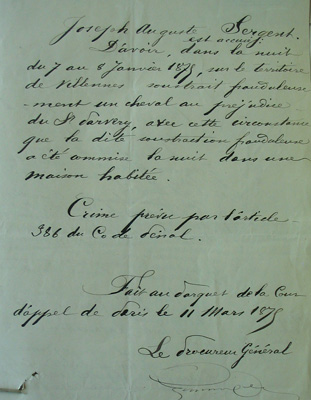 Joseph Auguste Sergent
est accusé:
D'avoir, dans la nuit
du 7 au 8 Janvier 1875, sur le territoire
de Velennes soustrait frauduleuse
-ment un cheval au préjudice
du Sr Darvery, avec cette circonstance
que la dite soustraction frauduleuse
a été commise la nuit dans une
maison habitée.
Crime prévu par l'article
386 du Code Pénal.
Fait au Parquet de la Cour
d'appel de Paris le 11 Mars 1875
Le Procureur Général